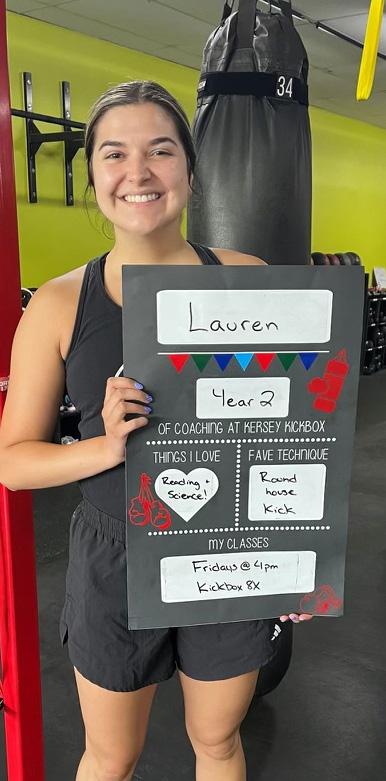 34
Lauren
Year 2
OF COACHING AT KERSEY KICKBOX
THINGS I LOVE
Reading +
Science!
FAVE TECHNIQUE
Round
house
Kick
MY CLASSES
Fridays @ 4pm
Kickbox 8X